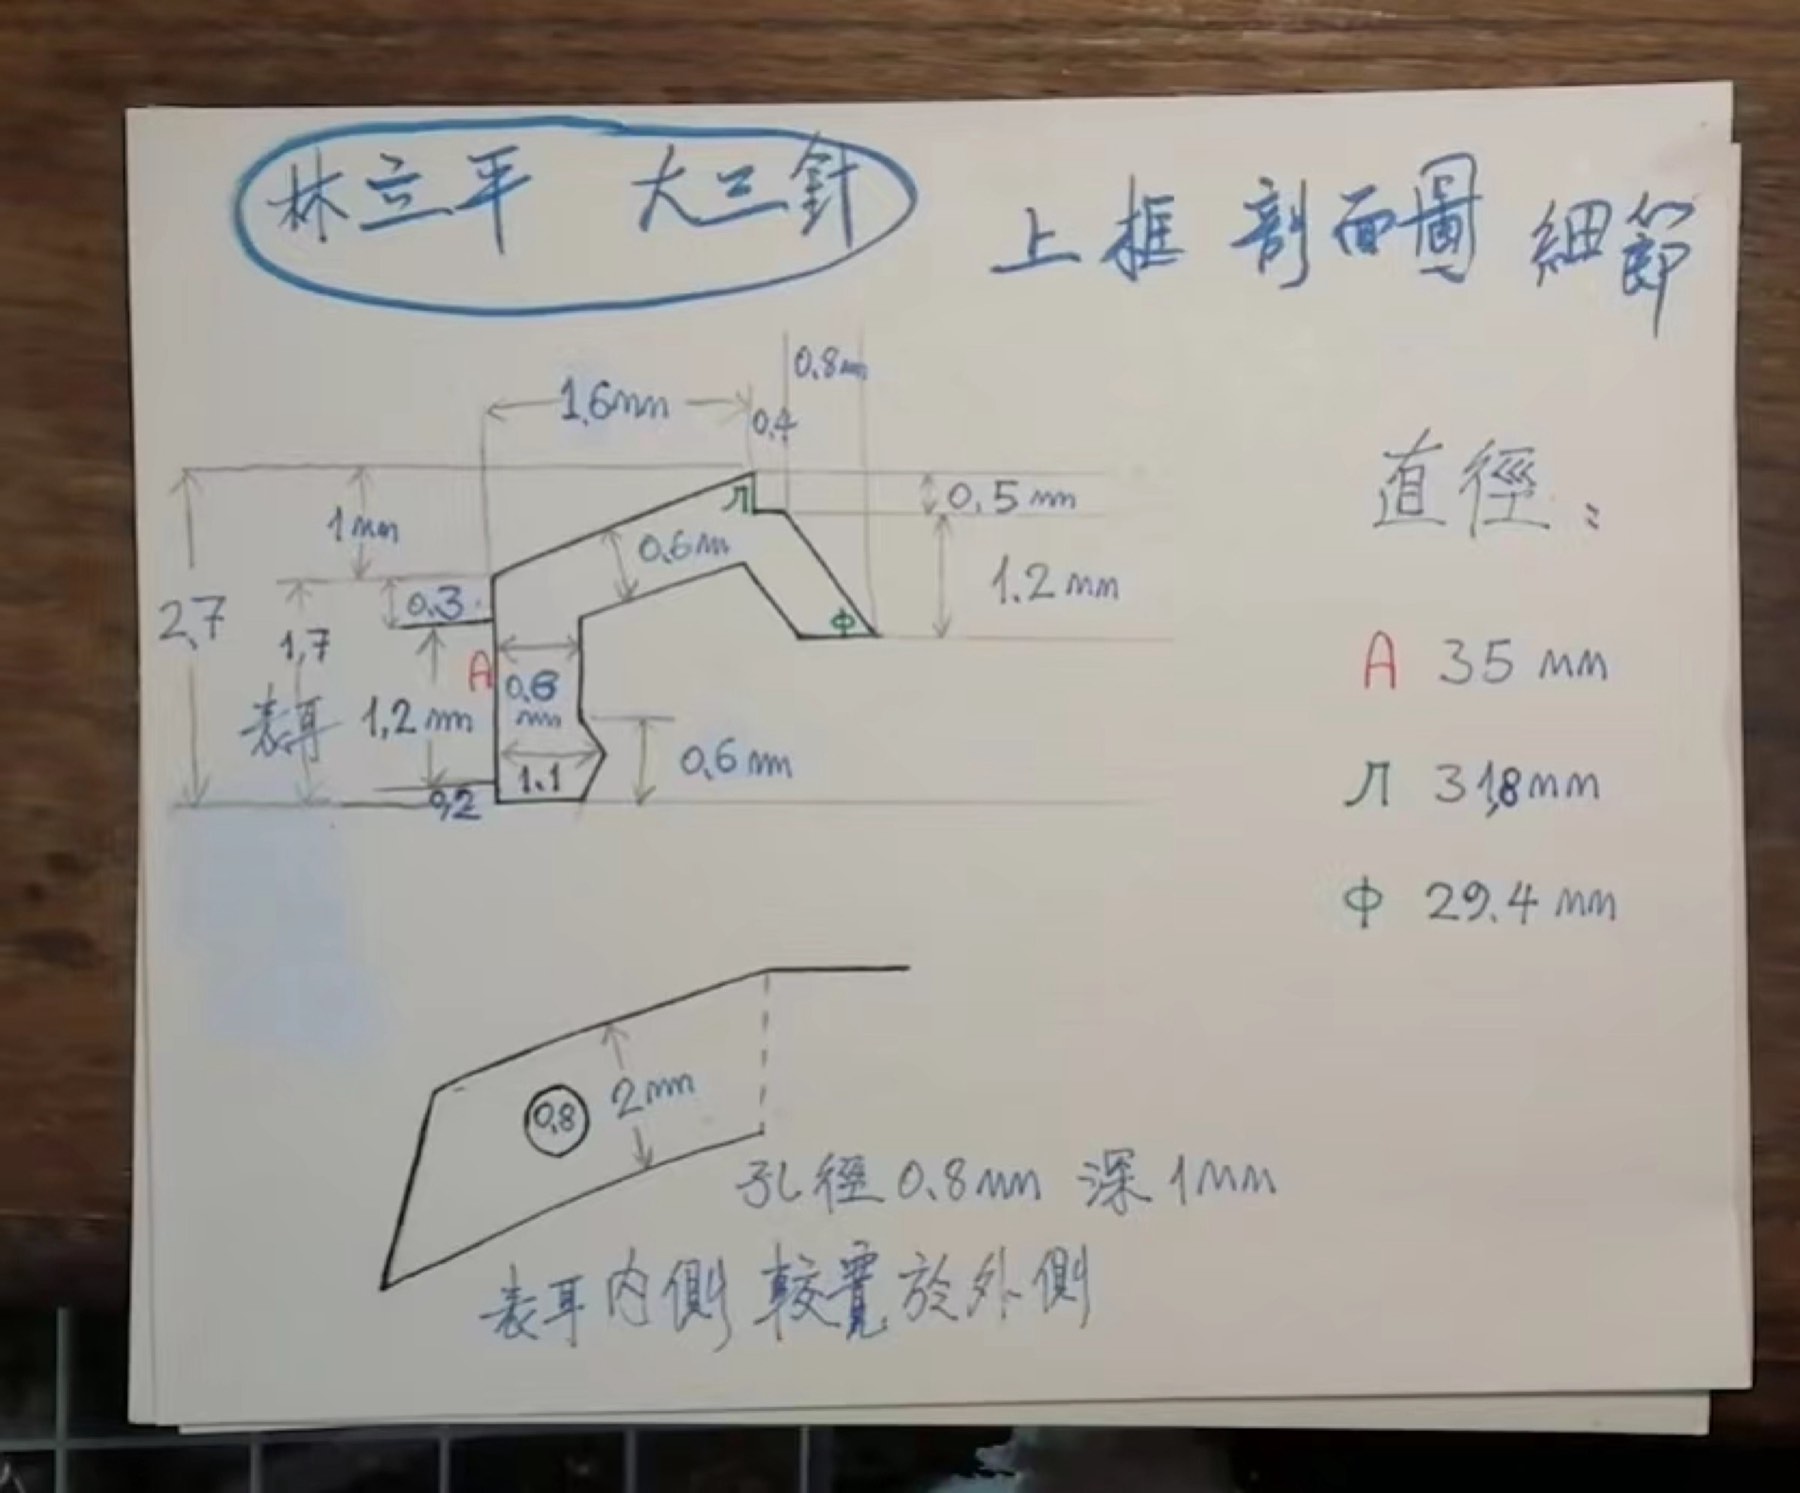 林立平 大三針
上框 剖面圖 細節
0.8mm
1.6mm
0.4
直徑:
1mm
0.5mm
0.6m
л
2.7
0.3
1.2mm
1,7
表耳
A
0.6
mm
1,2mm
Ф
0.6mm
1.1
0,2
A 35mm
л 31,8mm
Ф 29.4mm
0,8
2mm
孔徑0.8mm 深1mm
表耳內側 較寬於外側